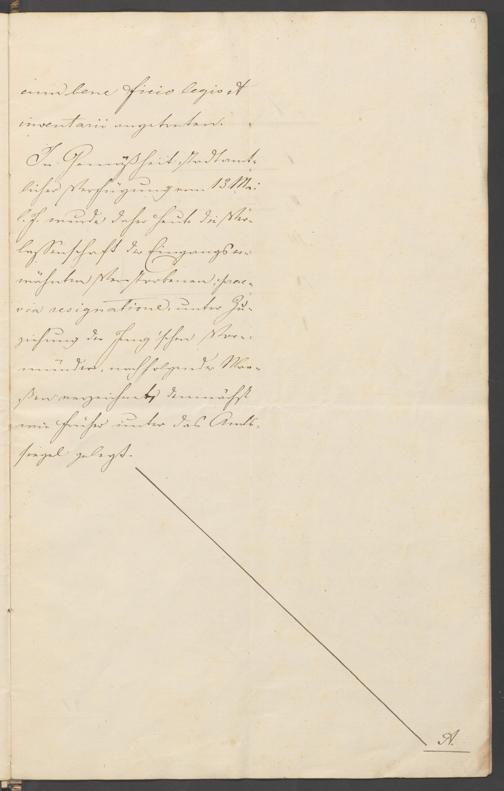 cum bene ficio legis et
inventarii angetreten.
In Gemäßheit stadtamt-
licher Verfügung vom 13 Mai
l. J. wurde daher heute die Ver-
lassenschaft der Eingangs er-
wähnten Verstorbenen, prae-
via resignatione, unter Zu-
ziehung der Jung'schen Vor-
münder, nachfolgender Maa-
ßen verzeichnet, demnächst
wie früher unter das Amts-
siegel gelegt.
A.